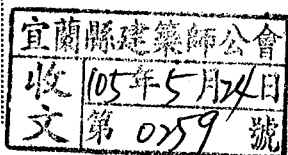 宜蘭縣建築師公會
收文
105年5月24日
第 0259 號